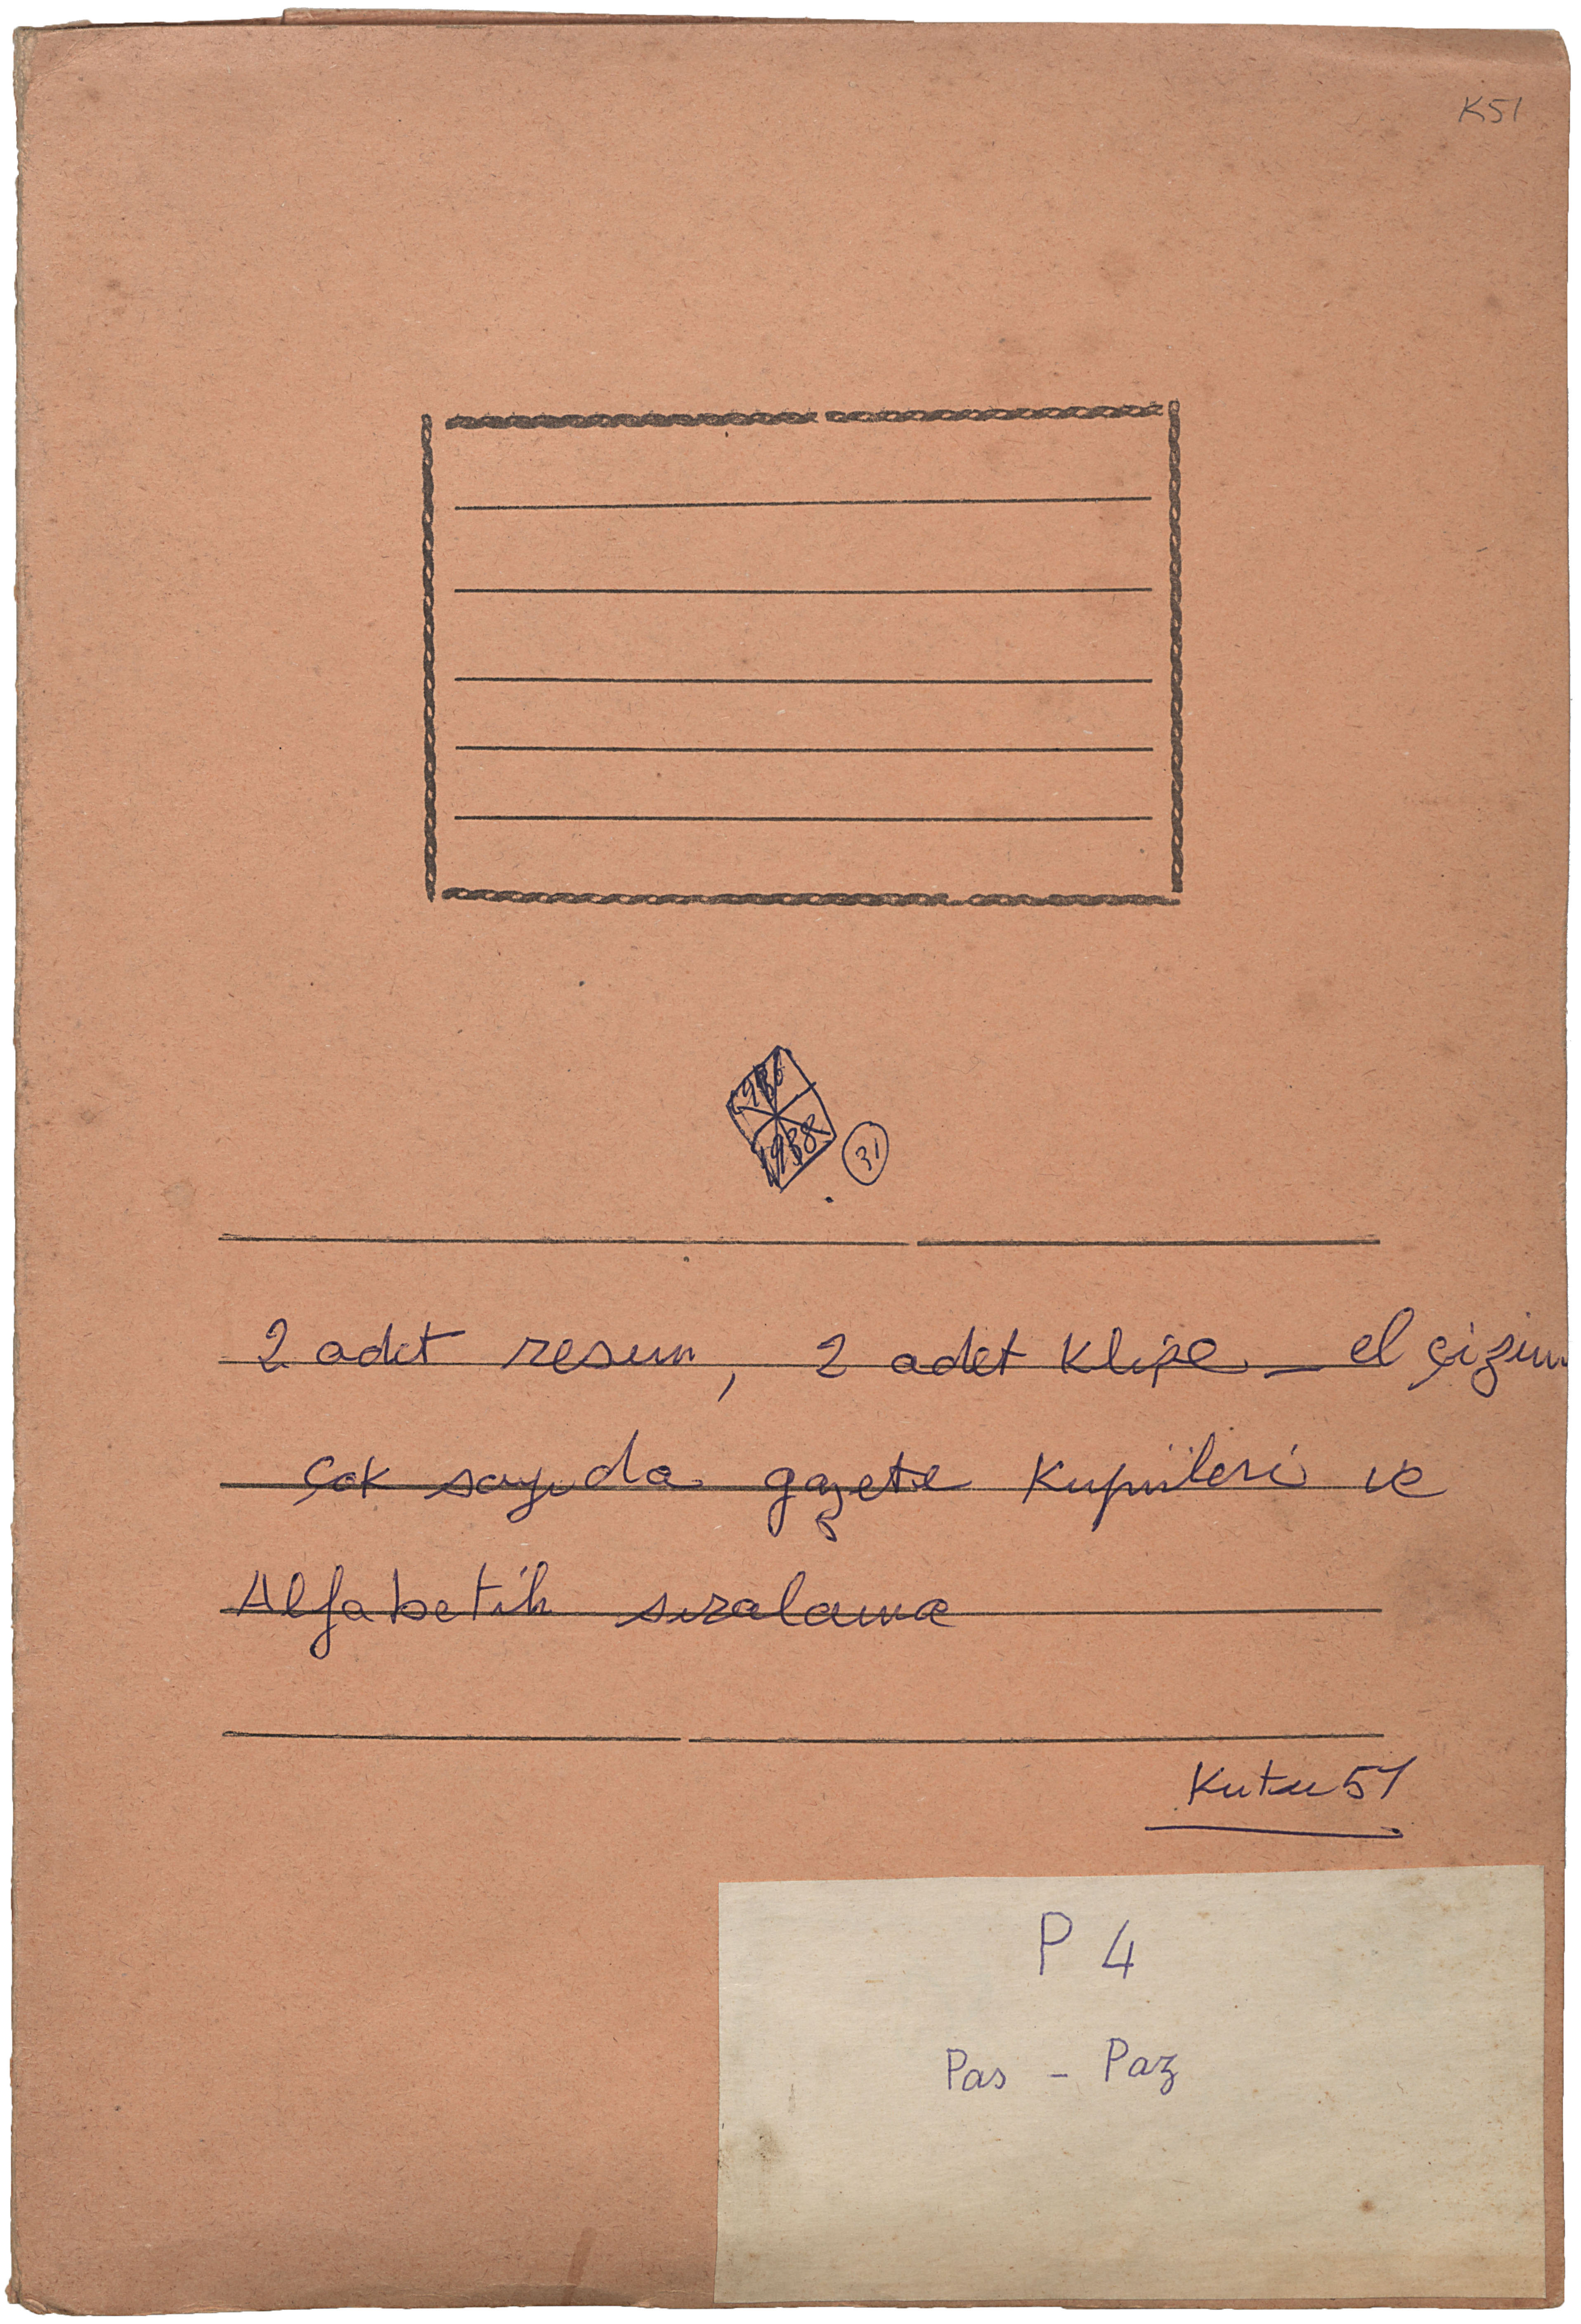 K51
1936
1938
31
2 adet resim, 2 adet klişe – el çizim
Çok sayıda gazete kupürleri ve
Alfabetik sıralama
Kutu 51
P 4
Pas - Paz